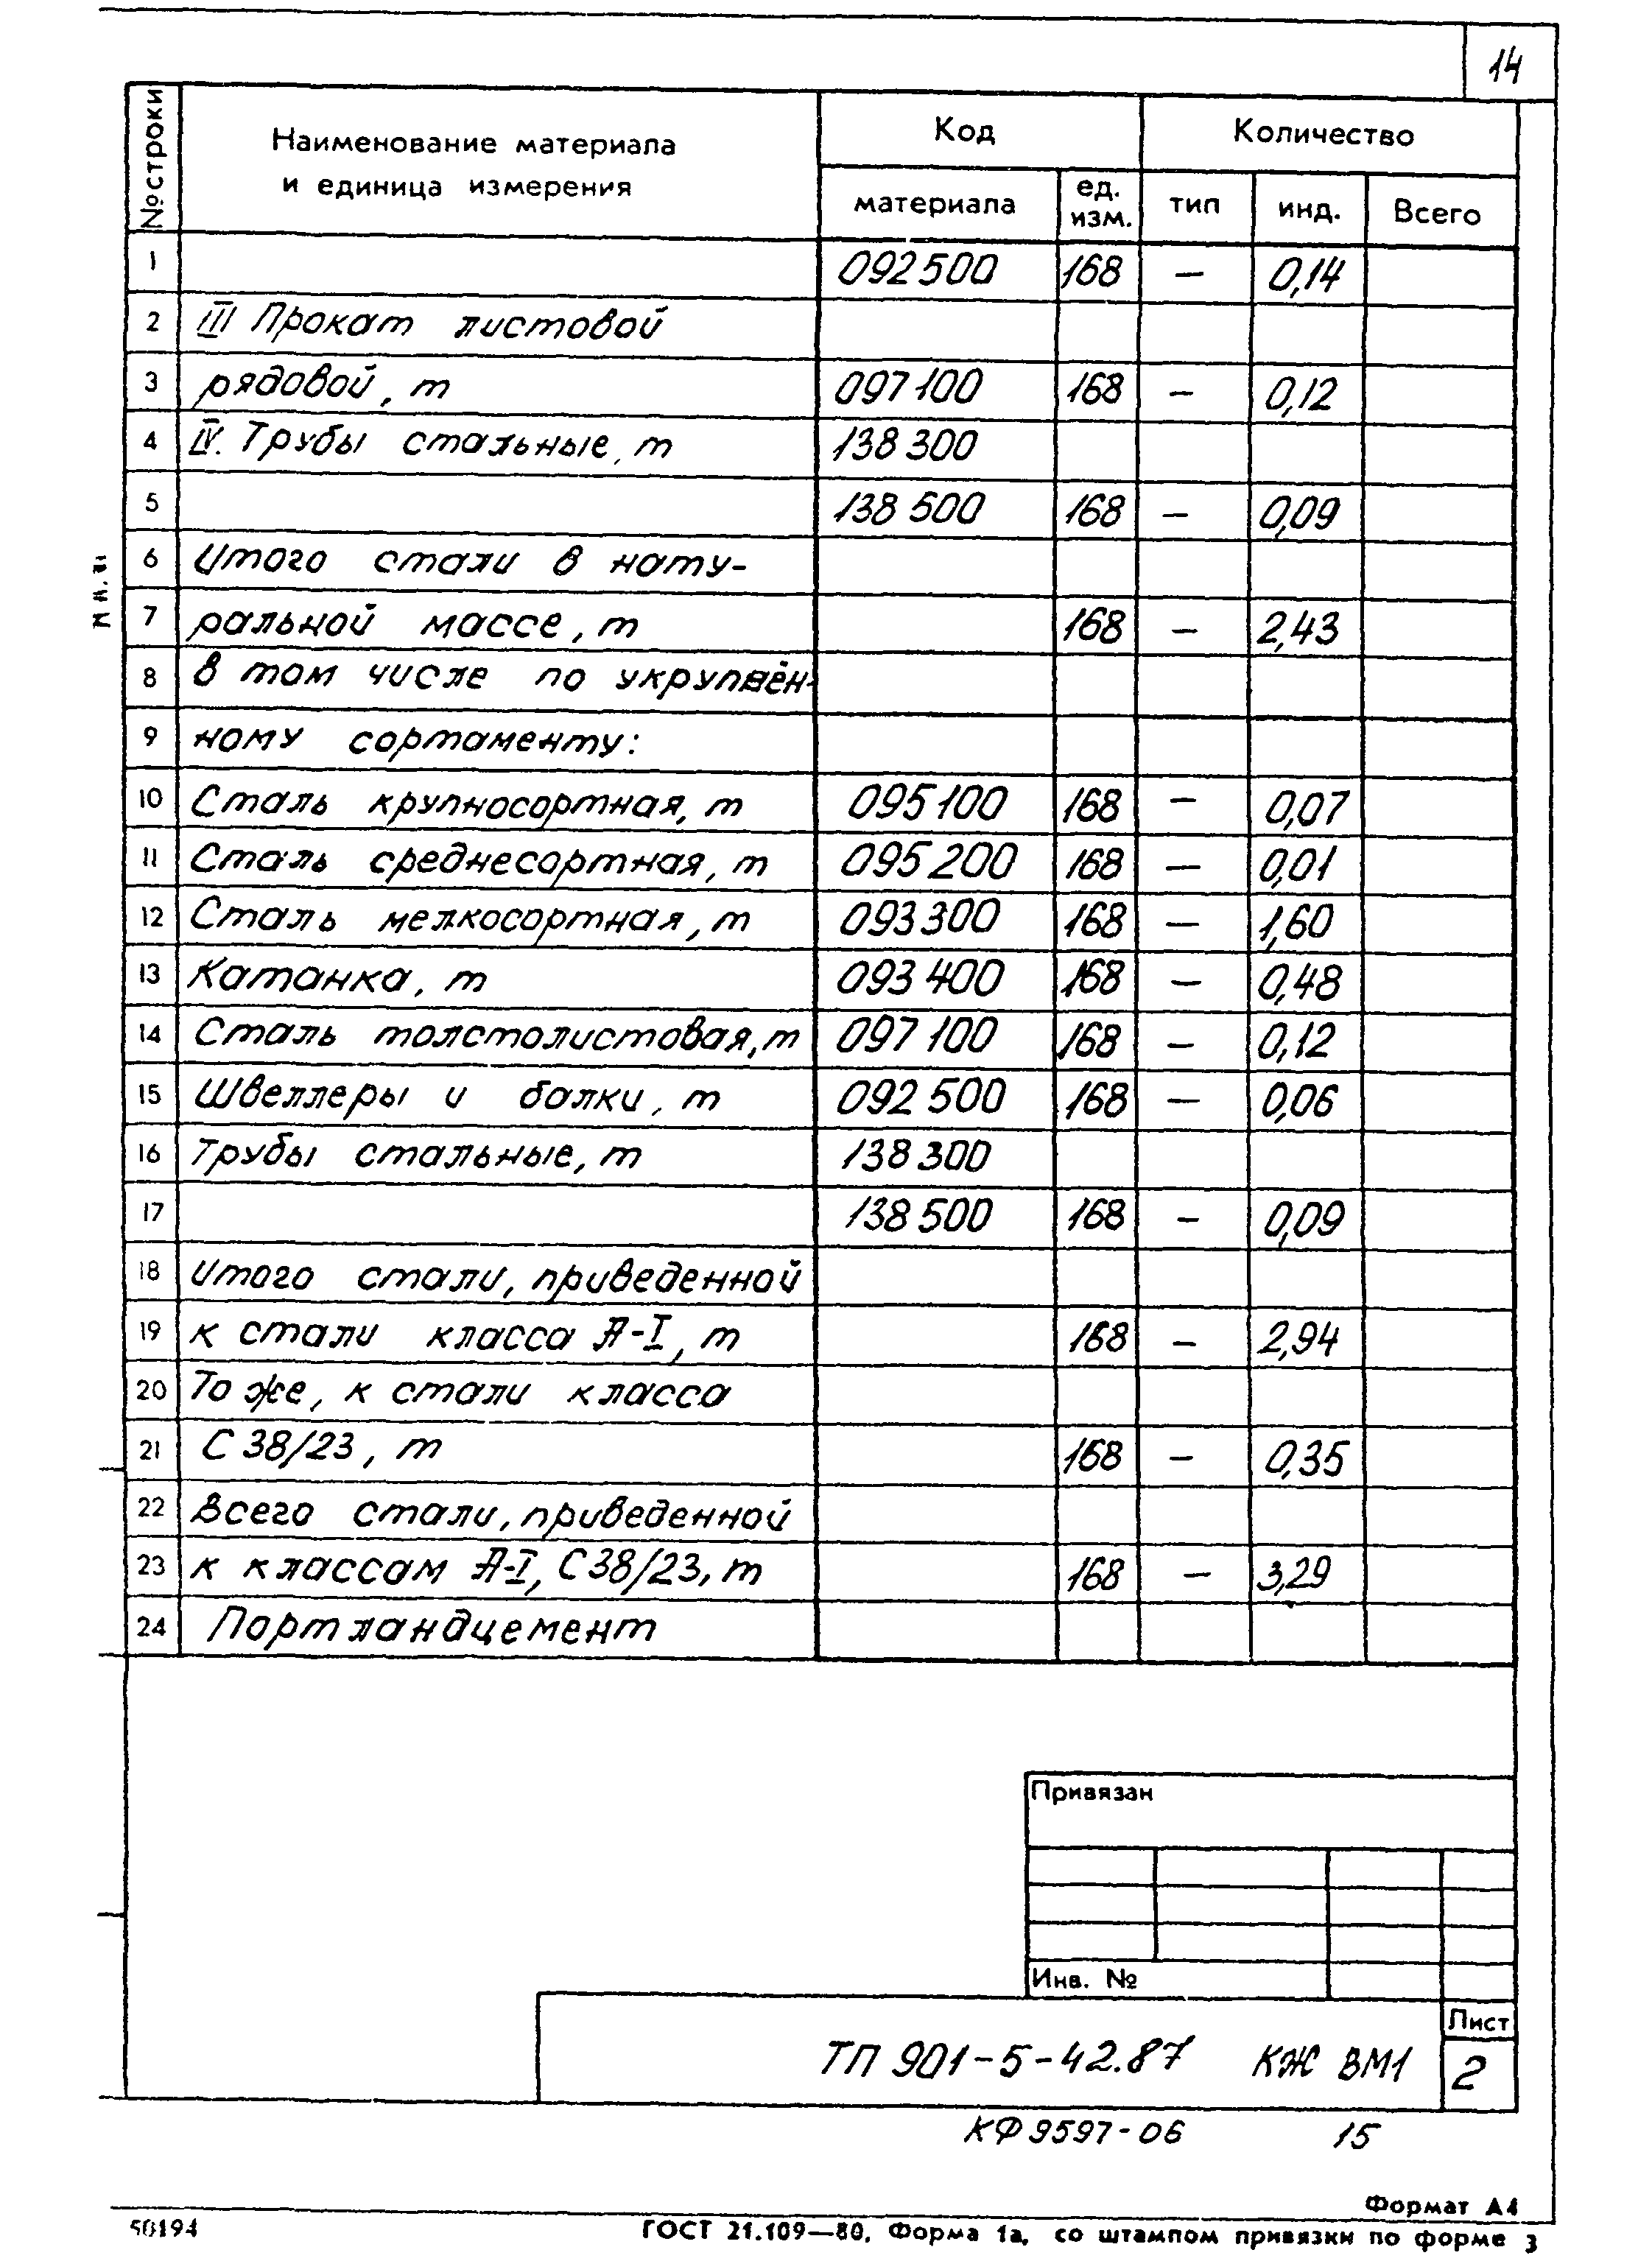 14
№ строки Наименование материала и единица измерения Код Количество
материала ед. изм. тип инд. Всего
1 092500 168 — 0,14
2 III Прокат листовой
3 рядовой, т 097100 168 — 0,12
4 IV. Трубы стальные, т 138300
5 138500 168 — 0,09
6 Итого стали в нату-
7 ральной массе, т 168 — 2,43
8 в том числе по укрупнён-
9 ному сортаменту:
10 Сталь крупносортная, т 095100 168 — 0,07
11 Сталь среднесортная, т 095200 168 — 0,01
12 Сталь мелкосортная, т 093300 168 — 1,60
13 Катанка, т 093400 168 — 0,48
14 Сталь толстолистовая, т 097100 168 — 0,12
15 Швеллеры и балки, т 092500 168 — 0,06
16 Трубы стальные, т 138300
17 138500 168 — 0,09
18 Итого стали, приведенной
19 к стали класса А-I, т 168 — 2,94
20 То же, к стали класса
21 С 38/23, т 168 — 0,35
22 Всего стали, приведенной
23 к классам А-I, С 38/23, т 168 — 3,29
24 Портландцемент
Привязан
Инв. №
Лист
ТП 901-5-42.87 КЖ ВМ1 2
КФ 9597-06 15
Формат А4
50194 ГОСТ 21.109—80. Форма 1а, со штампом привязки по форме 3